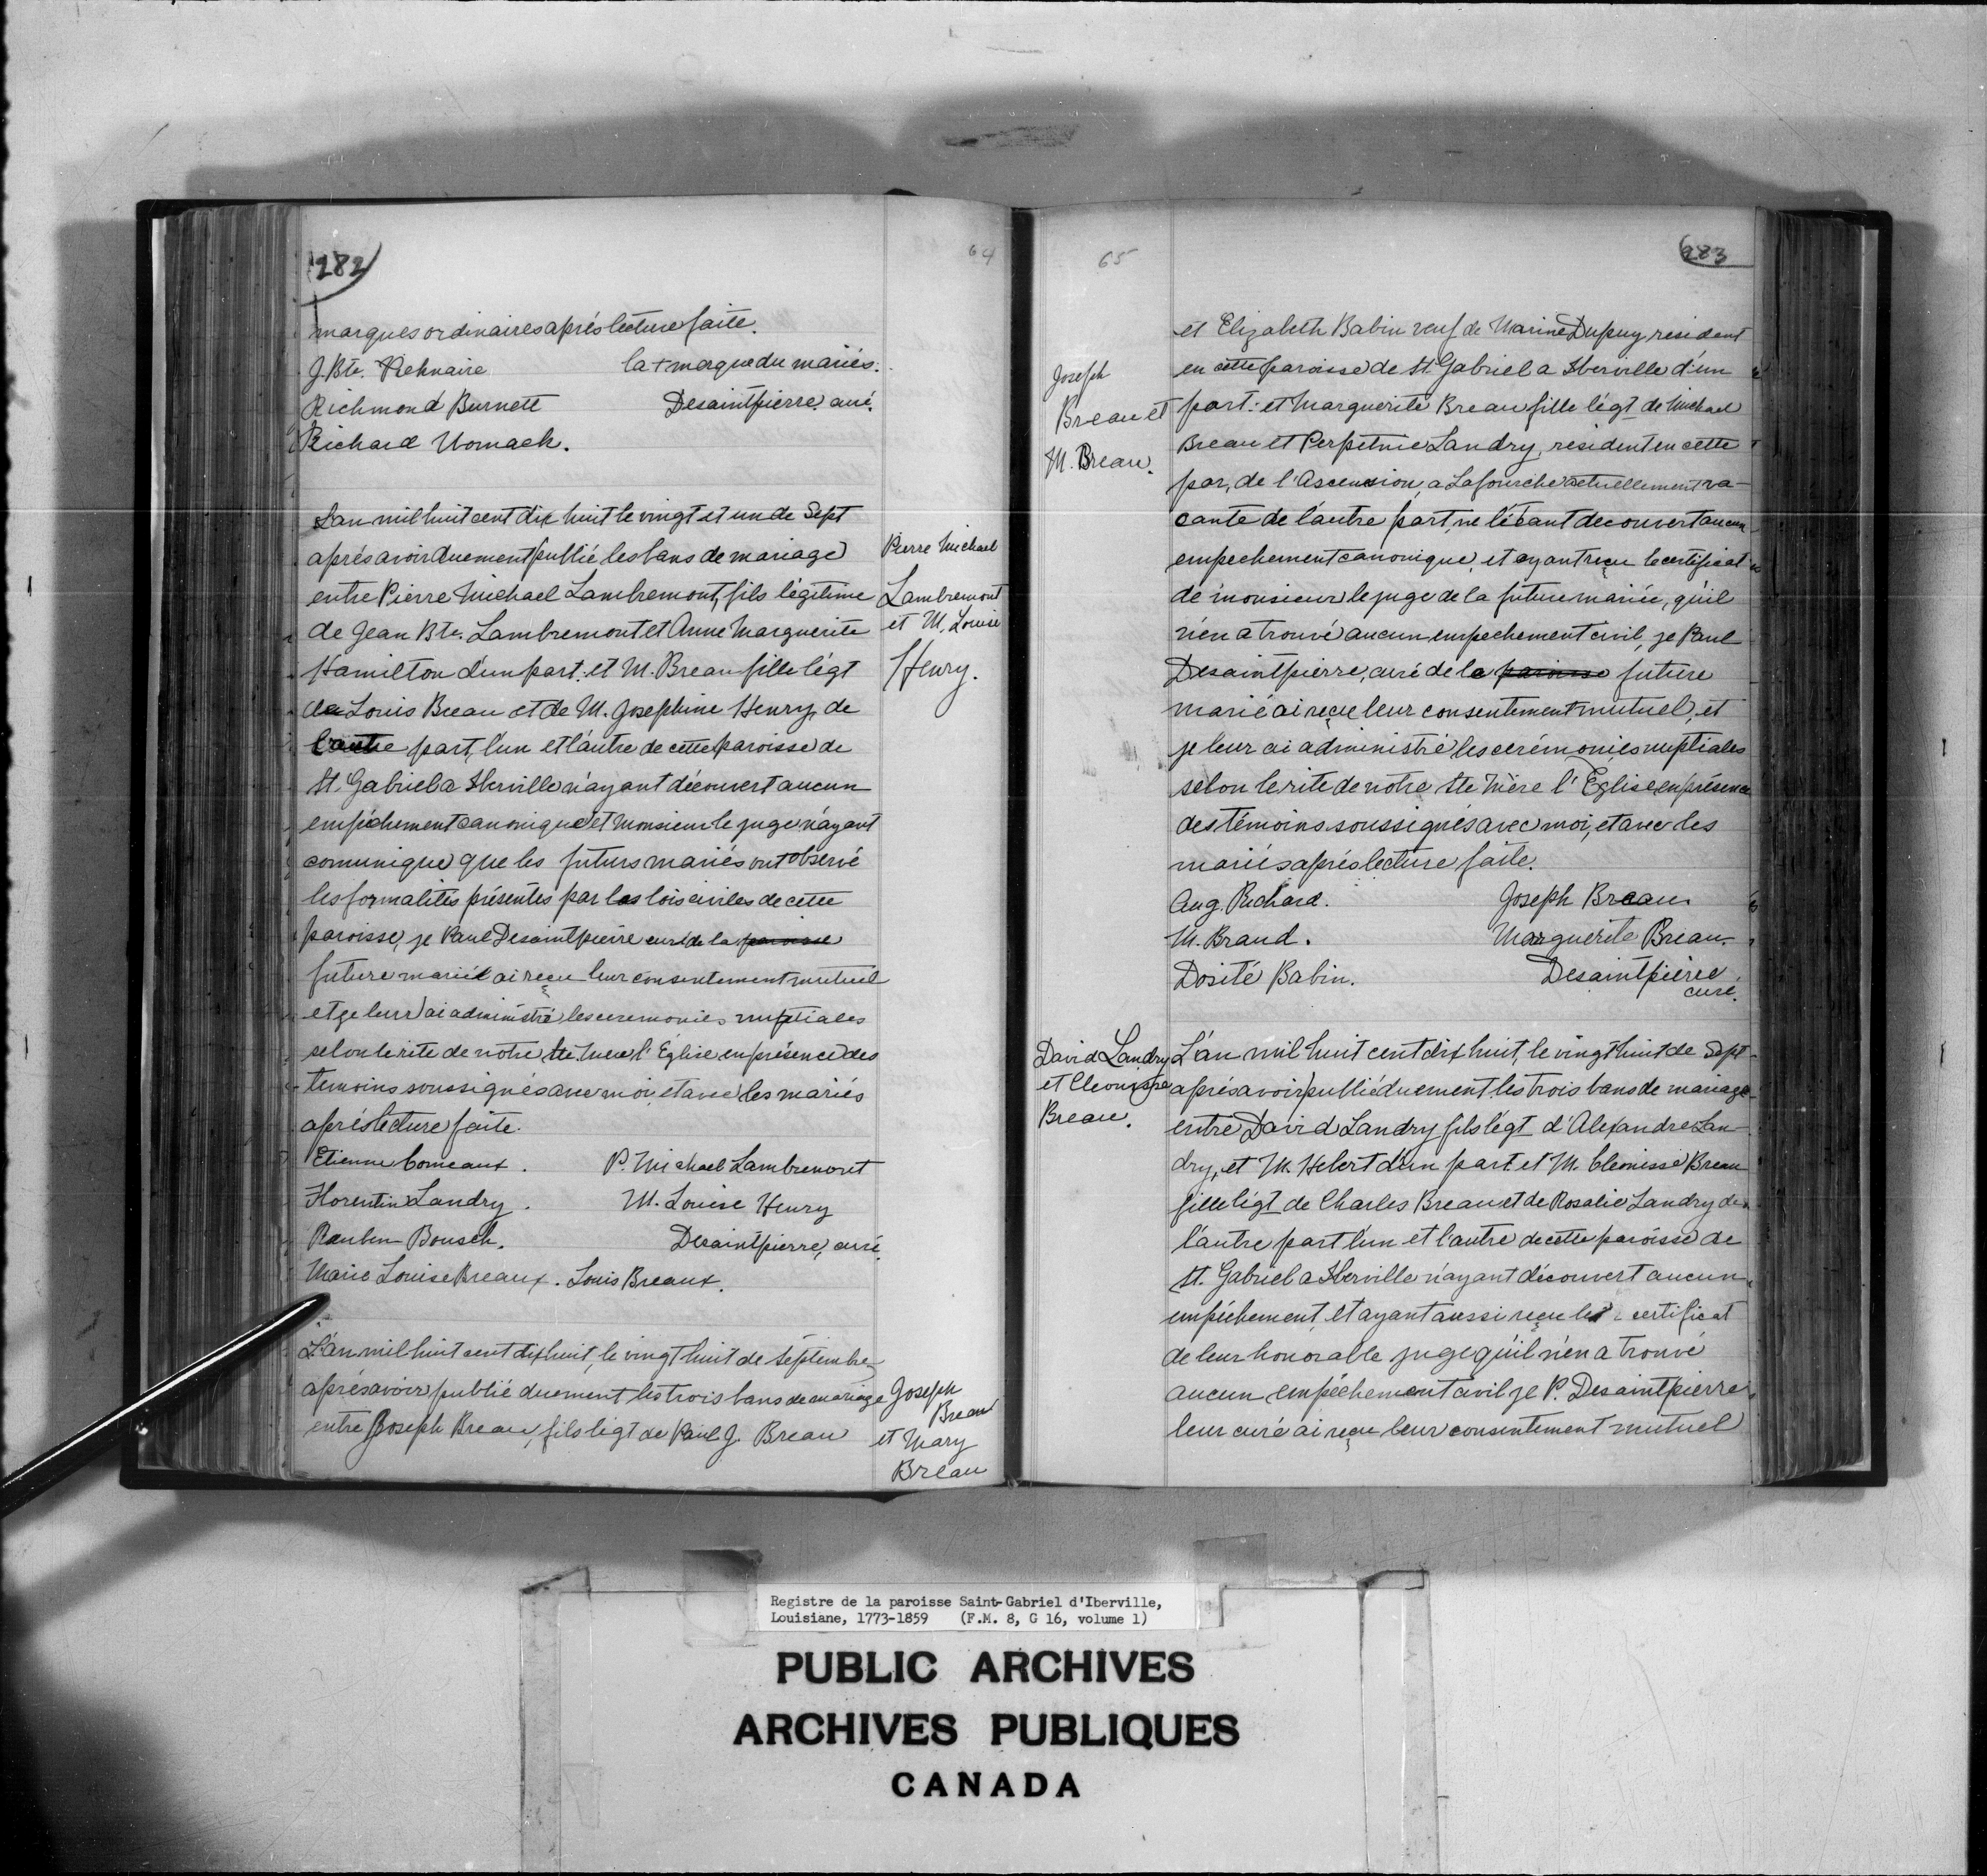 282
64
marques ordinaires aprés lecture faite.
J. Bte. la + marque du mariés.
Richmond Burnett Desaintpierre, curé.
Richard Womack.
L'an mil huit cent dix huit le vingt et un de Sept
aprés avoir duement publié les bans de mariage
entre Pierre Michael Lambremont, fils légitime
de Jean Bte. Lambremont et Anne Marguerite
Hamilton d'un part. et M. Breau fille légt
de Louis Breau et de M. Josephine Henry, de
l'autre part, l'un et l'autre de cette paroisse de
St. Gabriel a Iberville n'ayant découvert aucun
empéchement canonique et Monsieur le juge n'ayant
comunique que les futurs mariés ont observé
les formalités présentes par les lois civiles de cette
paroisse, je Paul Desaintpierre curé de la paroisse
future marieé ai reçu leur consentement mutuel
et je leur ai administré les ceremonies nuptiales
selon le rite de notre Ste. Mere l'Eglise en présence des
temoins soussignés avec moi, et avec les mariés
aprés lecture faite.
Etienne Comeaux. P. Michael Lambremont
Florentin Landry. M. Louise Henry
Reuben Bousch. Desaintpierre, curé.
Marie Louise Breaux. Louis Breaux.
Pierre Michael
Lambremont
et M. Louise
Henry.
L'an mil huit cent dix huit, le vingt huit de septembre
aprés avoir publié duement les trois bans de mariage
entre Joseph Breau, fils légt de Paul J. Breau
Joseph
Breau
et Mary
Breau
65
283
et Elizabeth Babin veuf de Marine Dupuy, resident
en cette paroisse de St. Gabriel a Iberville d'un
part: et Marguerite Breau fille légt de Michael
Breau et Perpetnie Landry, resident en cette
par, de l'Ascension, a Lafourche actuellement va-
cante de l'autre part, ne l'étant decouvert aucun
empechement canonique, et ayant reçu le certificat
de monsieur le juge de la future mariée, qu'il
n'en a trouvé aucun empechement civil, je Paul
Desaintpierre, curé de la paroisse future
marié ai reçu leur consentement mutuel, et
je leur ai administré les cerémonies nuptiales
selon le rite de notre Ste Mère l'Eglise, en présence
des témoins soussignés avec moi, et avec les
mariés aprés lecture faite.
Aug. Richard. Joseph Breau.
M. Braud. Marguerite Breau.
Dosité Babin. Desaintpierre
curé.
Joseph
Breau et
M. Breau.
David Landry
et Cleonisse
Breau.
L'an mil huit cent dix huit, le vingt huit de Sept
aprés avoir publié duement les trois bans de mariage
entre David Landry fils légt d'Alexandre Lan-
dry, et M. Hebert d'un part et M. Cleonisse Breau
fille légt de Charles Breau et de Rosalie Landry de
l'autre part l'un et l'autre de cette paroisse de
St. Gabriel a Iberville n'ayant découvert aucun
empéchement, et ayant aussi reçu le certificat
de leur honorable juge qu'il n'en a trouvé
aucun empéchement civil je P. Desaintpierre
leur curé ai reçu leur consentement mutuel
Registre de la paroisse Saint-Gabriel d'Iberville,
Louisiane, 1773-1859 (F.M. 8, G 16, volume 1)
PUBLIC ARCHIVES
ARCHIVES PUBLIQUES
CANADA